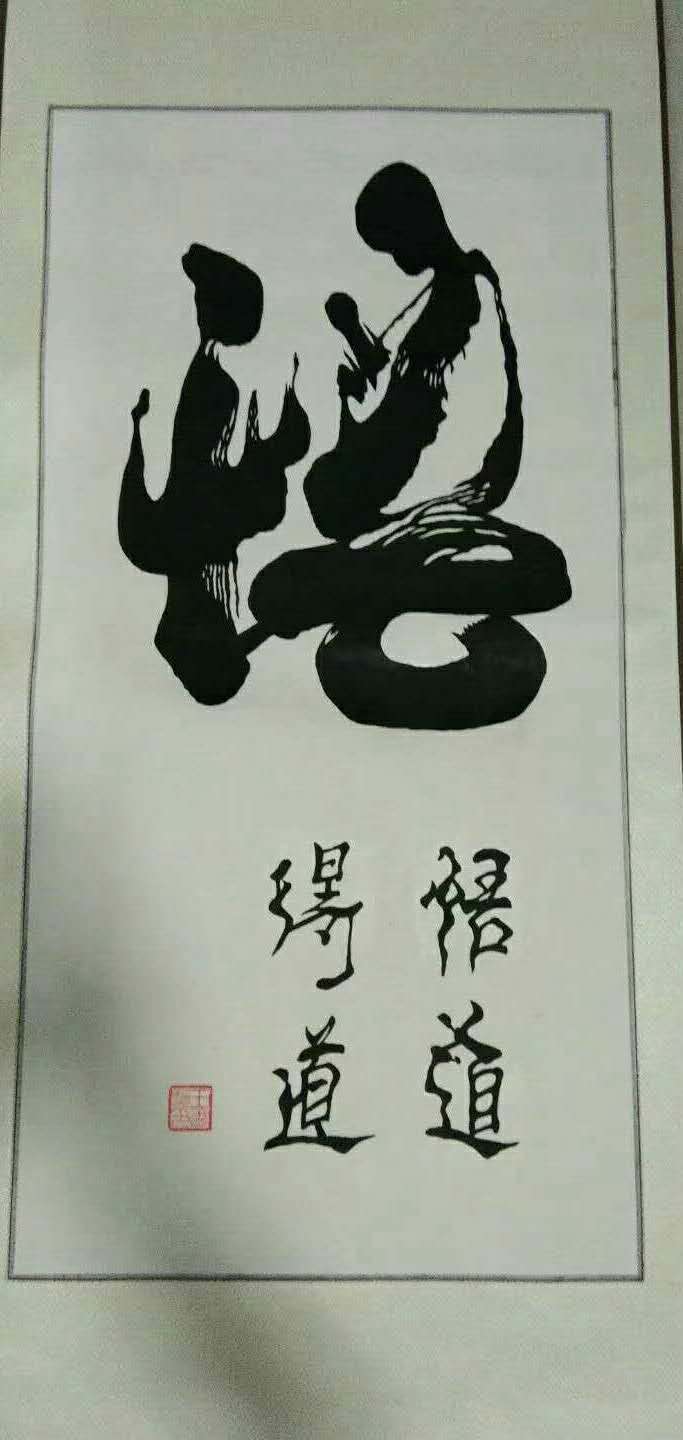 悟
悟道
得道